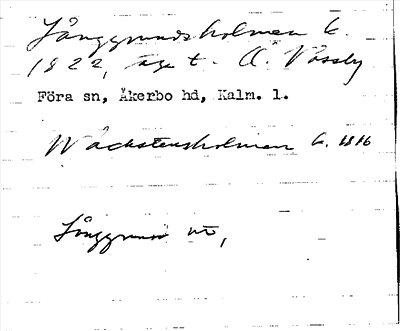 Långgrundsholmen G.
1822, äga t. Ö. Vässby
Föra sn, Åkerbo hd, Kalm. l.
Wäckstensholmen G. 1816
Långgrund